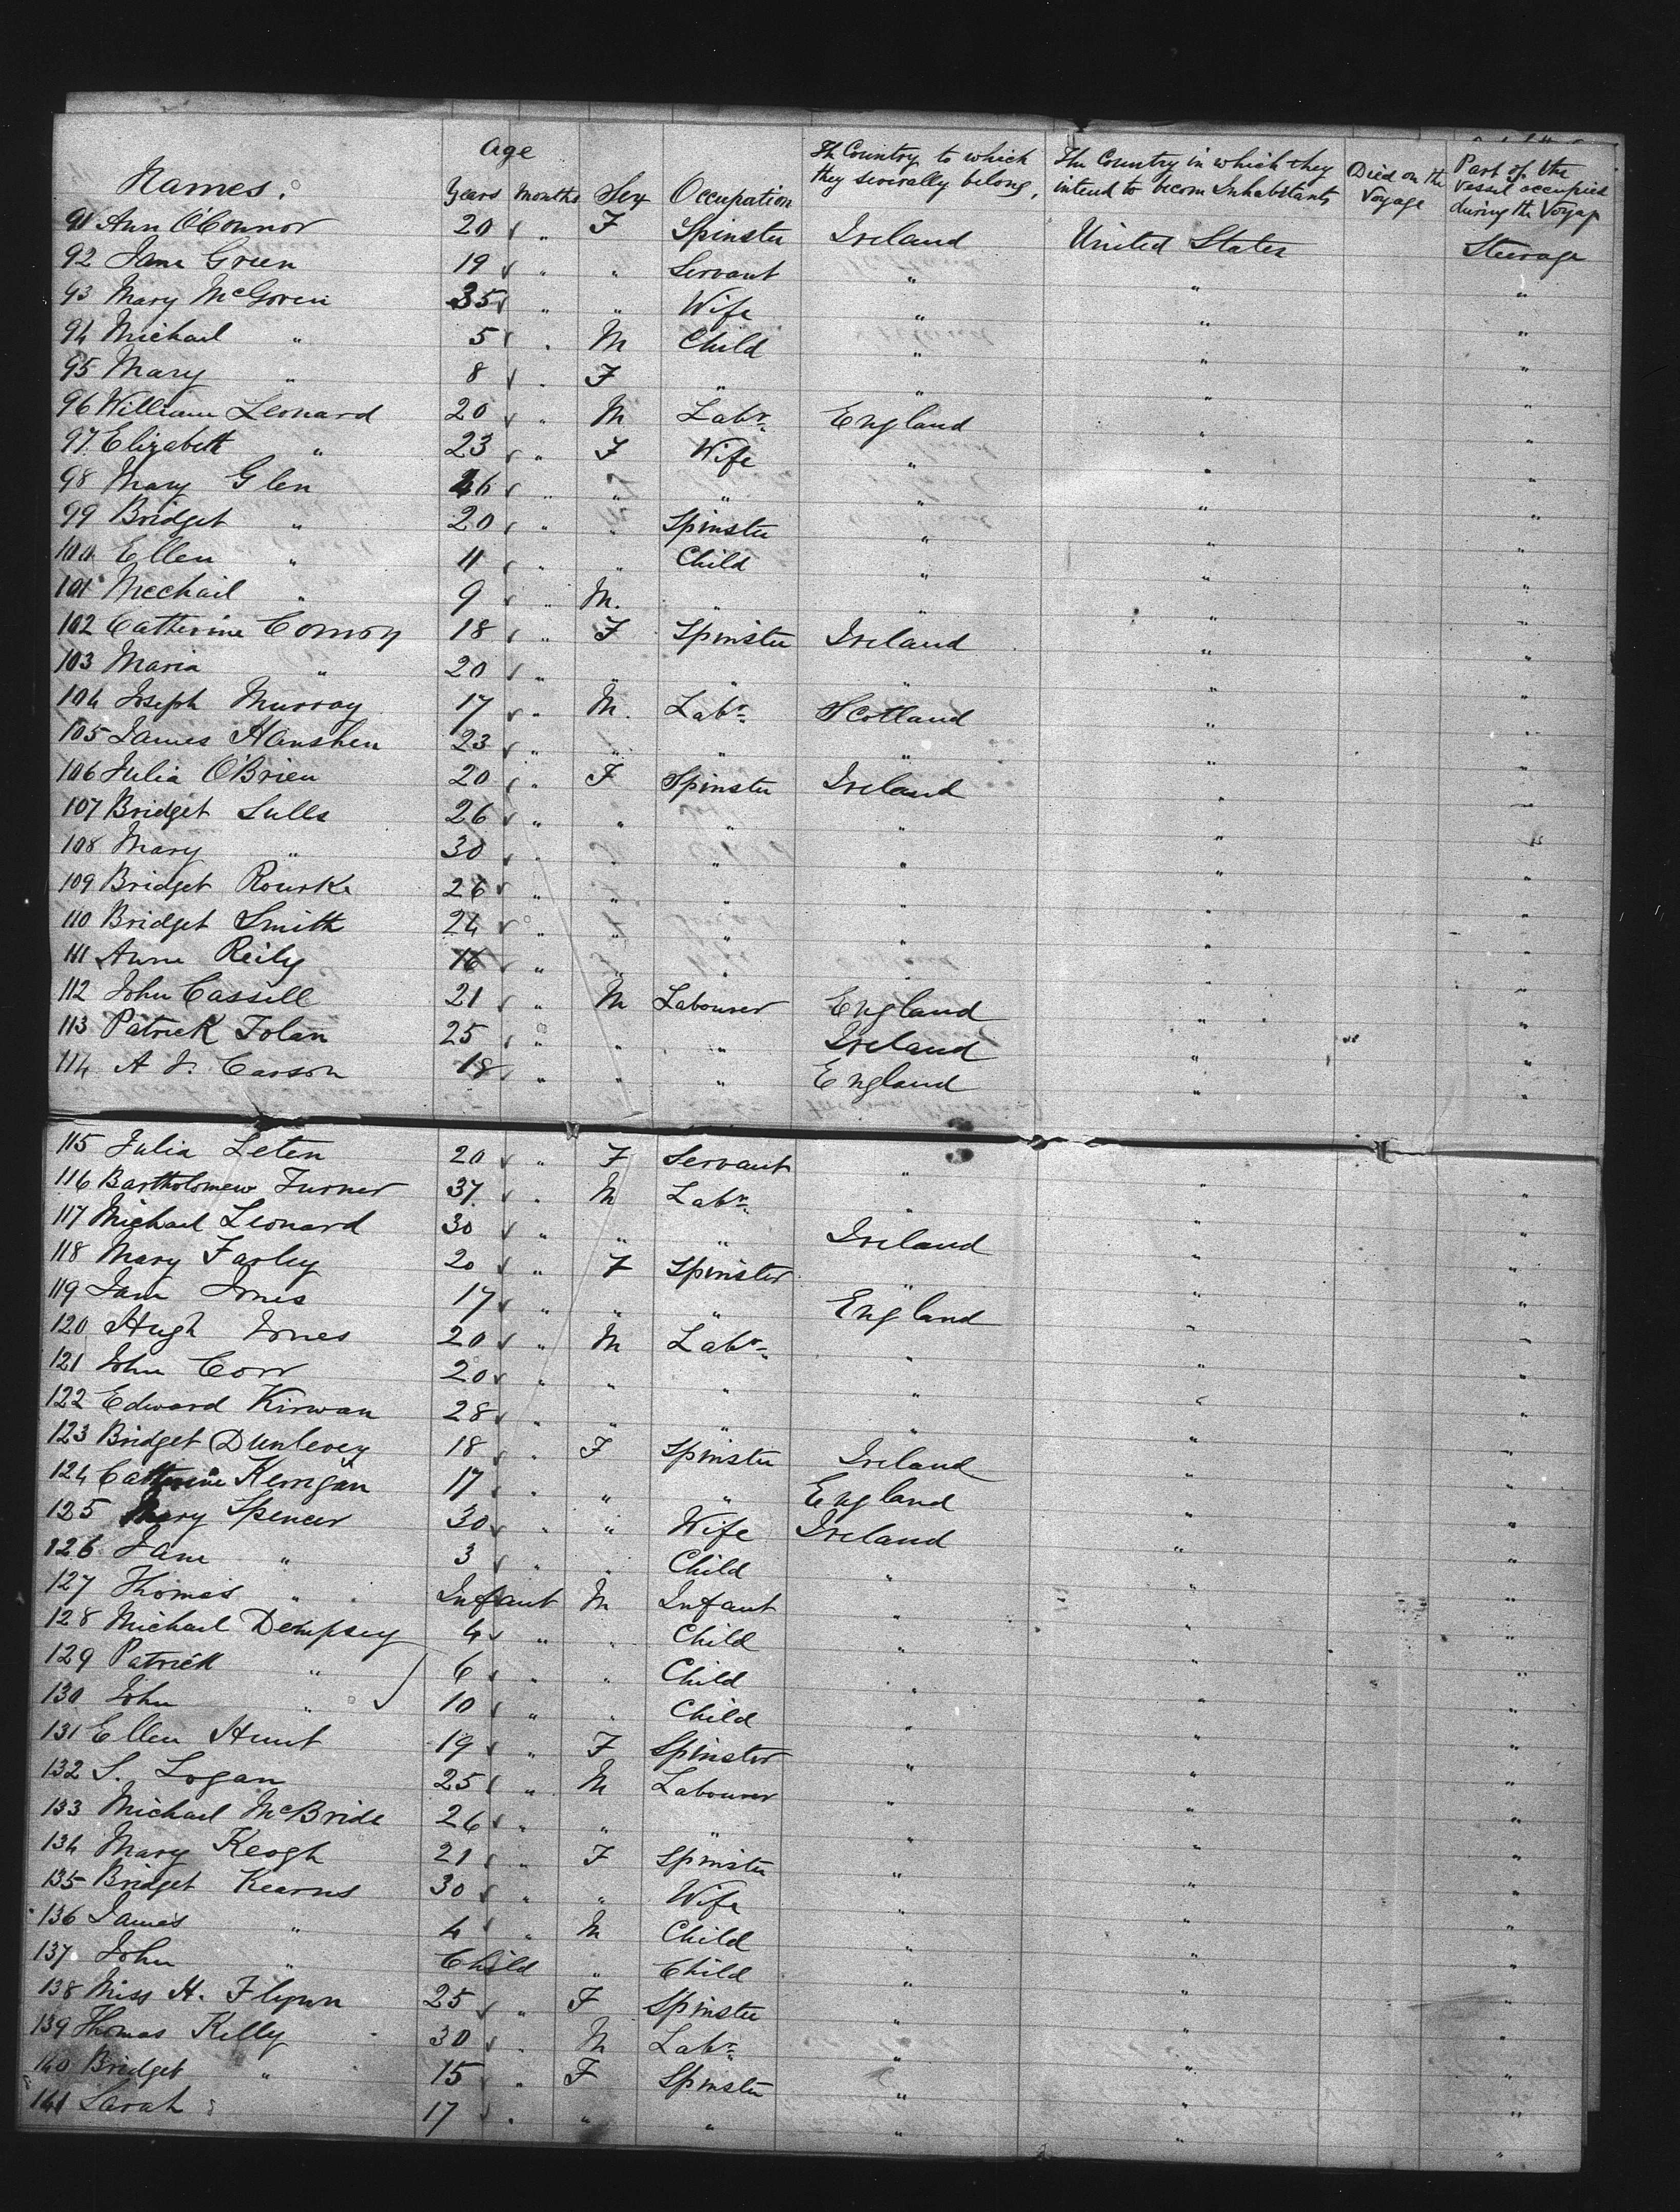 Names. Age Years Months Sex Occupation Th Country to which they severally belong. The Country in which they intend to becom Inhabitants Died on the Voyage Part of the vessel occupied during the Voyage
91 Ann O'Connor 20 " F Spinster Ireland United States Steerage
92 Jane Green 19 " " Servant " " "
93 Mary McGovern 35 " " Wife " " "
94 Michael " 5 " M Child " " "
95 Mary " 8 " F " " " "
96 William Leonard 20 " M Labr England " "
97 Elizabeth " 23 " F Wife " " "
98 Mary Glen 46 " " " " " "
99 Bridget " 20 " " Spinster " " "
100 Ellen " 11 " " Child " " "
101 Mechail " 9 " M. " " " "
102 Catherine Conroy 18 " F Spinster Ireland " "
103 Maria " 20 " " " " " "
104 Joseph Murray 17 " M. Labr Scotland " "
105 James Hanshen 23 " " " " " "
106 Julia O'Brien 20 " F Spinster Ireland " "
107 Bridget Lulls 26 " " " " " "
108 Mary " 30 " " " " " "
109 Bridget Rourke 26 " " " " " "
110 Bridget Smith 24 " " " " " "
111 Anne Reily 16 " " " " " "
112 John Cassell 21 " M Labourer England " "
113 Patrick Tolan 25 " " " Ireland " " "
114 A J. Carson 18 " " " England " "
115 Julia Leten 20 " F Servant " " "
116 Bartholomew Turner 37 " M Labr " " "
117 Michael Leonard 30 " " " Ireland " "
118 Mary Farley 20 " F Spinster " " "
119 Jane Jones 17 " " " England " "
120 Hugh Jones 20 " M Labr " " "
121 John Corr 20 " " " " " "
122 Edward Kirwan 28 " " " " " "
123 Bridget Dunlevey 18 " F Spinster Ireland " "
124 Catherine Kerrigan 17 " " " England " "
125 Mary Spencer 30 " " Wife Ireland " "
126 Jane " 3 " " Child " " "
127 Thomas " Infant M Infant " " "
128 Michael Dempsey 4 " " Child " " "
129 Patrick " 6 " " Child " " "
130 John " 10 " " Child " " "
131 Ellen Hunt 19 " F Spinster " " "
132 S. Logan 25 " M Labourer " " "
133 Michael McBride 26 " " " " " "
134 Mary Keogh 21 " F Spinster " " "
135 Bridget Kearns 30 " " Wife " " "
136 James " 4 " M Child " " "
137 John " Child " Child " " "
138 Miss H. Flynn 25 " F Spinster " " "
139 Thomas Kelly 30 " M Labr " " "
140 Bridget " 15 " F Spinster " " "
141 Sarah " 17 " " " " " "